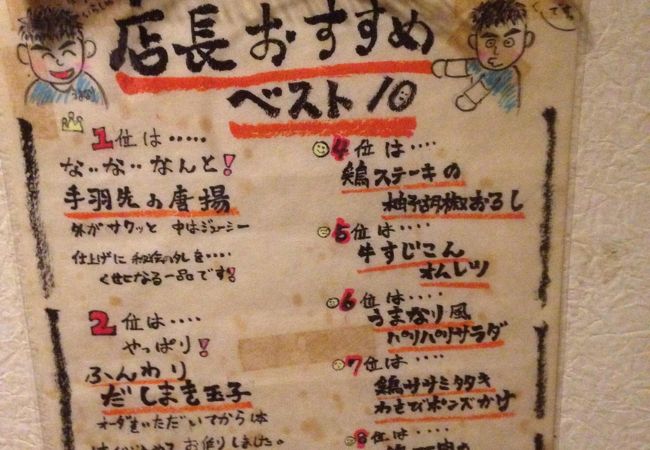 店長おすすめ
ベスト10
1位は・・・・・
な・・な・・なんと!
手羽先の唐揚
外がサクッと 中はジューシー
仕上げに 秘伝のタレを・・・・
くせになる一品です!
2位は・・・・
やっぱり!
ふんわり
だしまき玉子
オーダをいただいてから
お作りしました。
4位は・・・・
鶏ステーキの
柚子胡椒おろし
5位は・・・・
牛すじこん
オムレツ
6位は・・・・
うまなり風
パリパリサラダ
7位は・・・・
鶏ササミタタキ
わさびポンズかけ
8位は・・・・